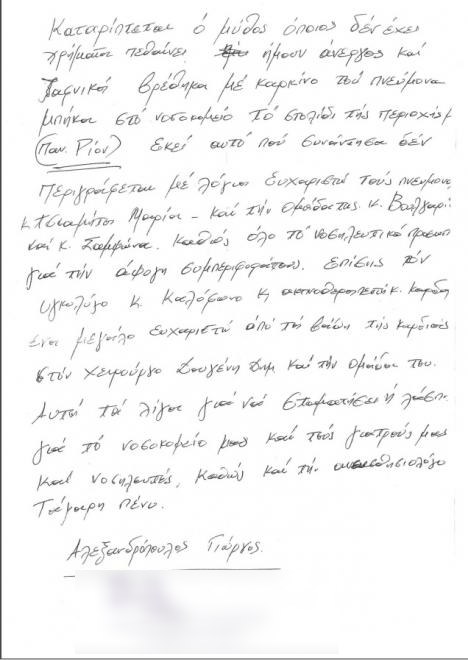 Καταρίπτεται ὁ μύθος όποιος δέν έχει
χρήματα πεθαίνει ήμουν άνεργος και
ξαφνικά βρέθηκα μέ καρκίνο τού πνεύμονα
μπήκα στό νοσοκομείο τό στολίδι τής περιοχής μ
(Παν. Ρίου) Εκεί αυτό πού συνάντησα δέν
περιγράφεται μέ λόγια ευχαριστώ τούς πνευμονο
κ. Τσιαμήτα Μαρία - καί τήν ομάδα της κ.
καί κ. Σαμψώνα. Καθώς όλο τό νοσηλευτικό
γιά τήν άψογη συμπεριφορά τους. Επίσης τόν
ογκολόγο κ. Καλόφωνο κ
ένα μεγάλο ευχαριστώ από τά βάθη τής καρδιάς
στόν χειρούργο Δουγένη Δημ καί τήν ομάδα του.
Αυτά τά λίγα γιά νά σταματήσει ή λάσπη
γιά τό νοσοκομείο μας καί τούς γιατρούς μας
καί νοσηλευτές, καθώς καί τήν αναισθησιολόγο
Πένυ.
Αλεξανδρόπουλος Γιώργος.